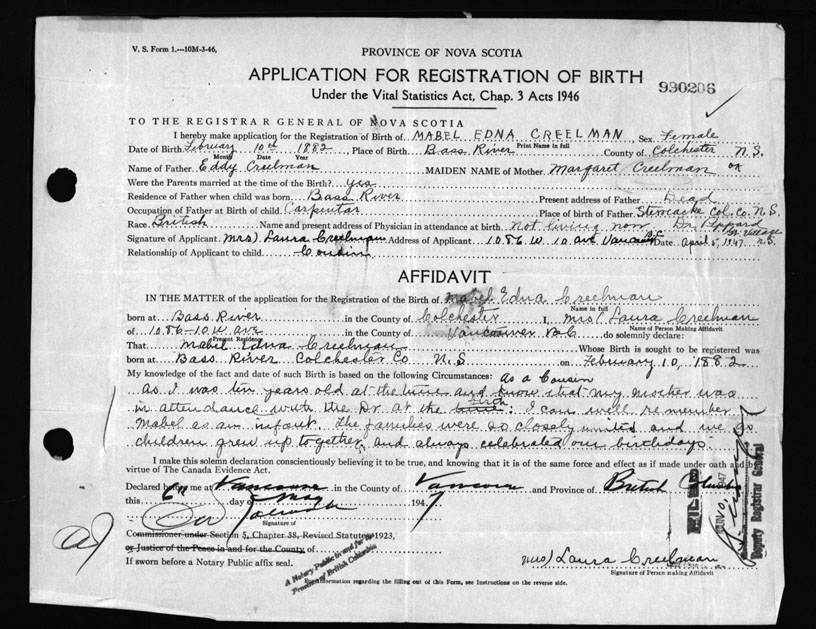 V. S. Form 1.—10M-3-46,
PROVINCE OF NOVA SCOTIA
APPLICATION FOR REGISTRATION OF BIRTH
990206
Under the Vital Statistics Act, Chap. 3 Acts 1946
TO THE REGISTRAR GENERAL OF NOVA SCOTIA
I hereby make application for the Registration of Birth of MABEL EDNA CREELMAN, Sex Female
Print Name in full
Date of Birth February 10th 1882, Place of Birth Bass River County of Colchester N.S.
Month Date Year
Name of Father Eddy Creelman MAIDEN NAME of Mother Margaret Creelman
Were the Parents married at the time of the Birth? yes
Residence of Father when child was born Bass River Present address of Father Dead
Occupation of Father at Birth of child Carpentar Place of birth of Father Col. Co. N.S.
Race British Name and present address of Physician in attendance at birth not living now Dr Village N.S.
Signature of Applicant Mrs) Laura Creelman Address of Applicant 1086 W. 10 ave Vancouver B.C. Date April 5, 1947
Relationship of Applicant to child Cousin
AFFIDAVIT
IN THE MATTER of the application for the Registration of the Birth of Mabel Edna Creelman
Name in full
born at Bass River in the County of Colchester I, Mrs) Laura Creelman
Name of Person Making Affidavit
of 1086-10 W ave in the County of Vancouver B.C do solemnly declare:
Present Residence
That Mabel Edna Creelman Whose Birth is sought to be registered was
born at Bass River Colchester Co N.S on February 10, 1882
My knowledge of the fact and date of such Birth is based on the following Circumstances: as a Cousin
As I was ten years old at the time and know that my mother was
in attendance with the Dr at the birth: I can well remember
Mabel as an infant. The families were so closely united and we as
children grew up together, and always celebrated our birthdays.
I make this solemn declaration conscientiously believing it to be true, and knowing that it is of the same force and effect as if made under oath and by
virtue of The Canada Evidence Act.
Declared before me at Vancouver in the County of Vancouver and Province of British Columbia
this 6th day of May 1947
Signature of
Commissioner under Section 5, Chapter 38, Revised Statutes 1923,
or Justice of the Peace in and for the County of
If sworn before a Notary Public affix seal.
A Notary Public in and for the
Province of British Columbia
Mrs) Laura Creelman
Signature of Person making Affidavit
For information regarding the filling out of this Form, see Instructions on the reverse side.
FILED
Deputy Registrar General